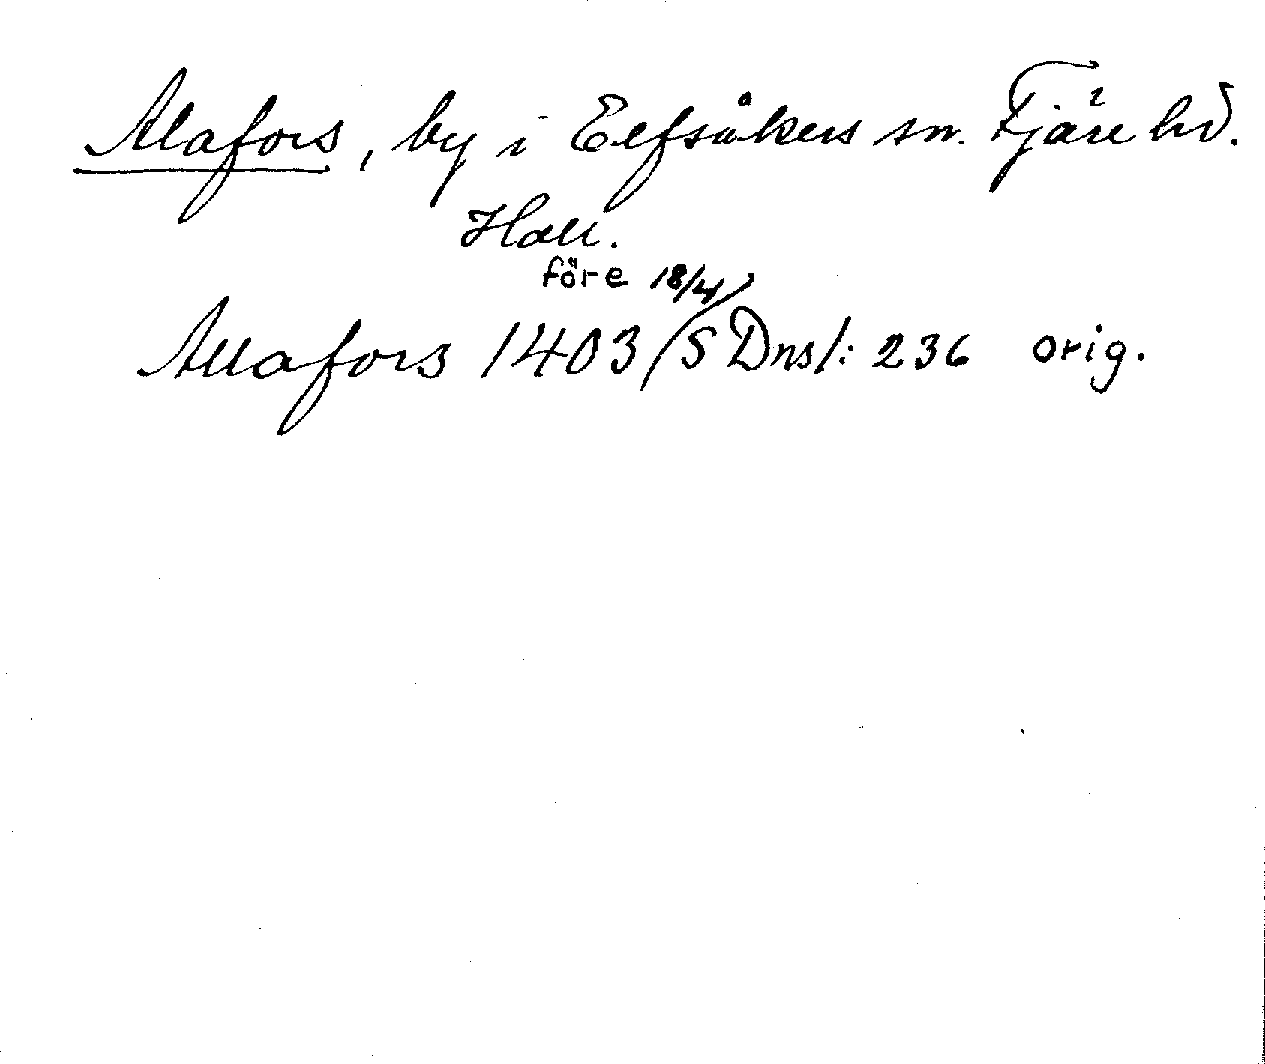 Alafors, by i Elfsåkers sn. Fjäre hd.
Hall.
före 18/4
Allafors 1403 (SDns1: 236 orig.